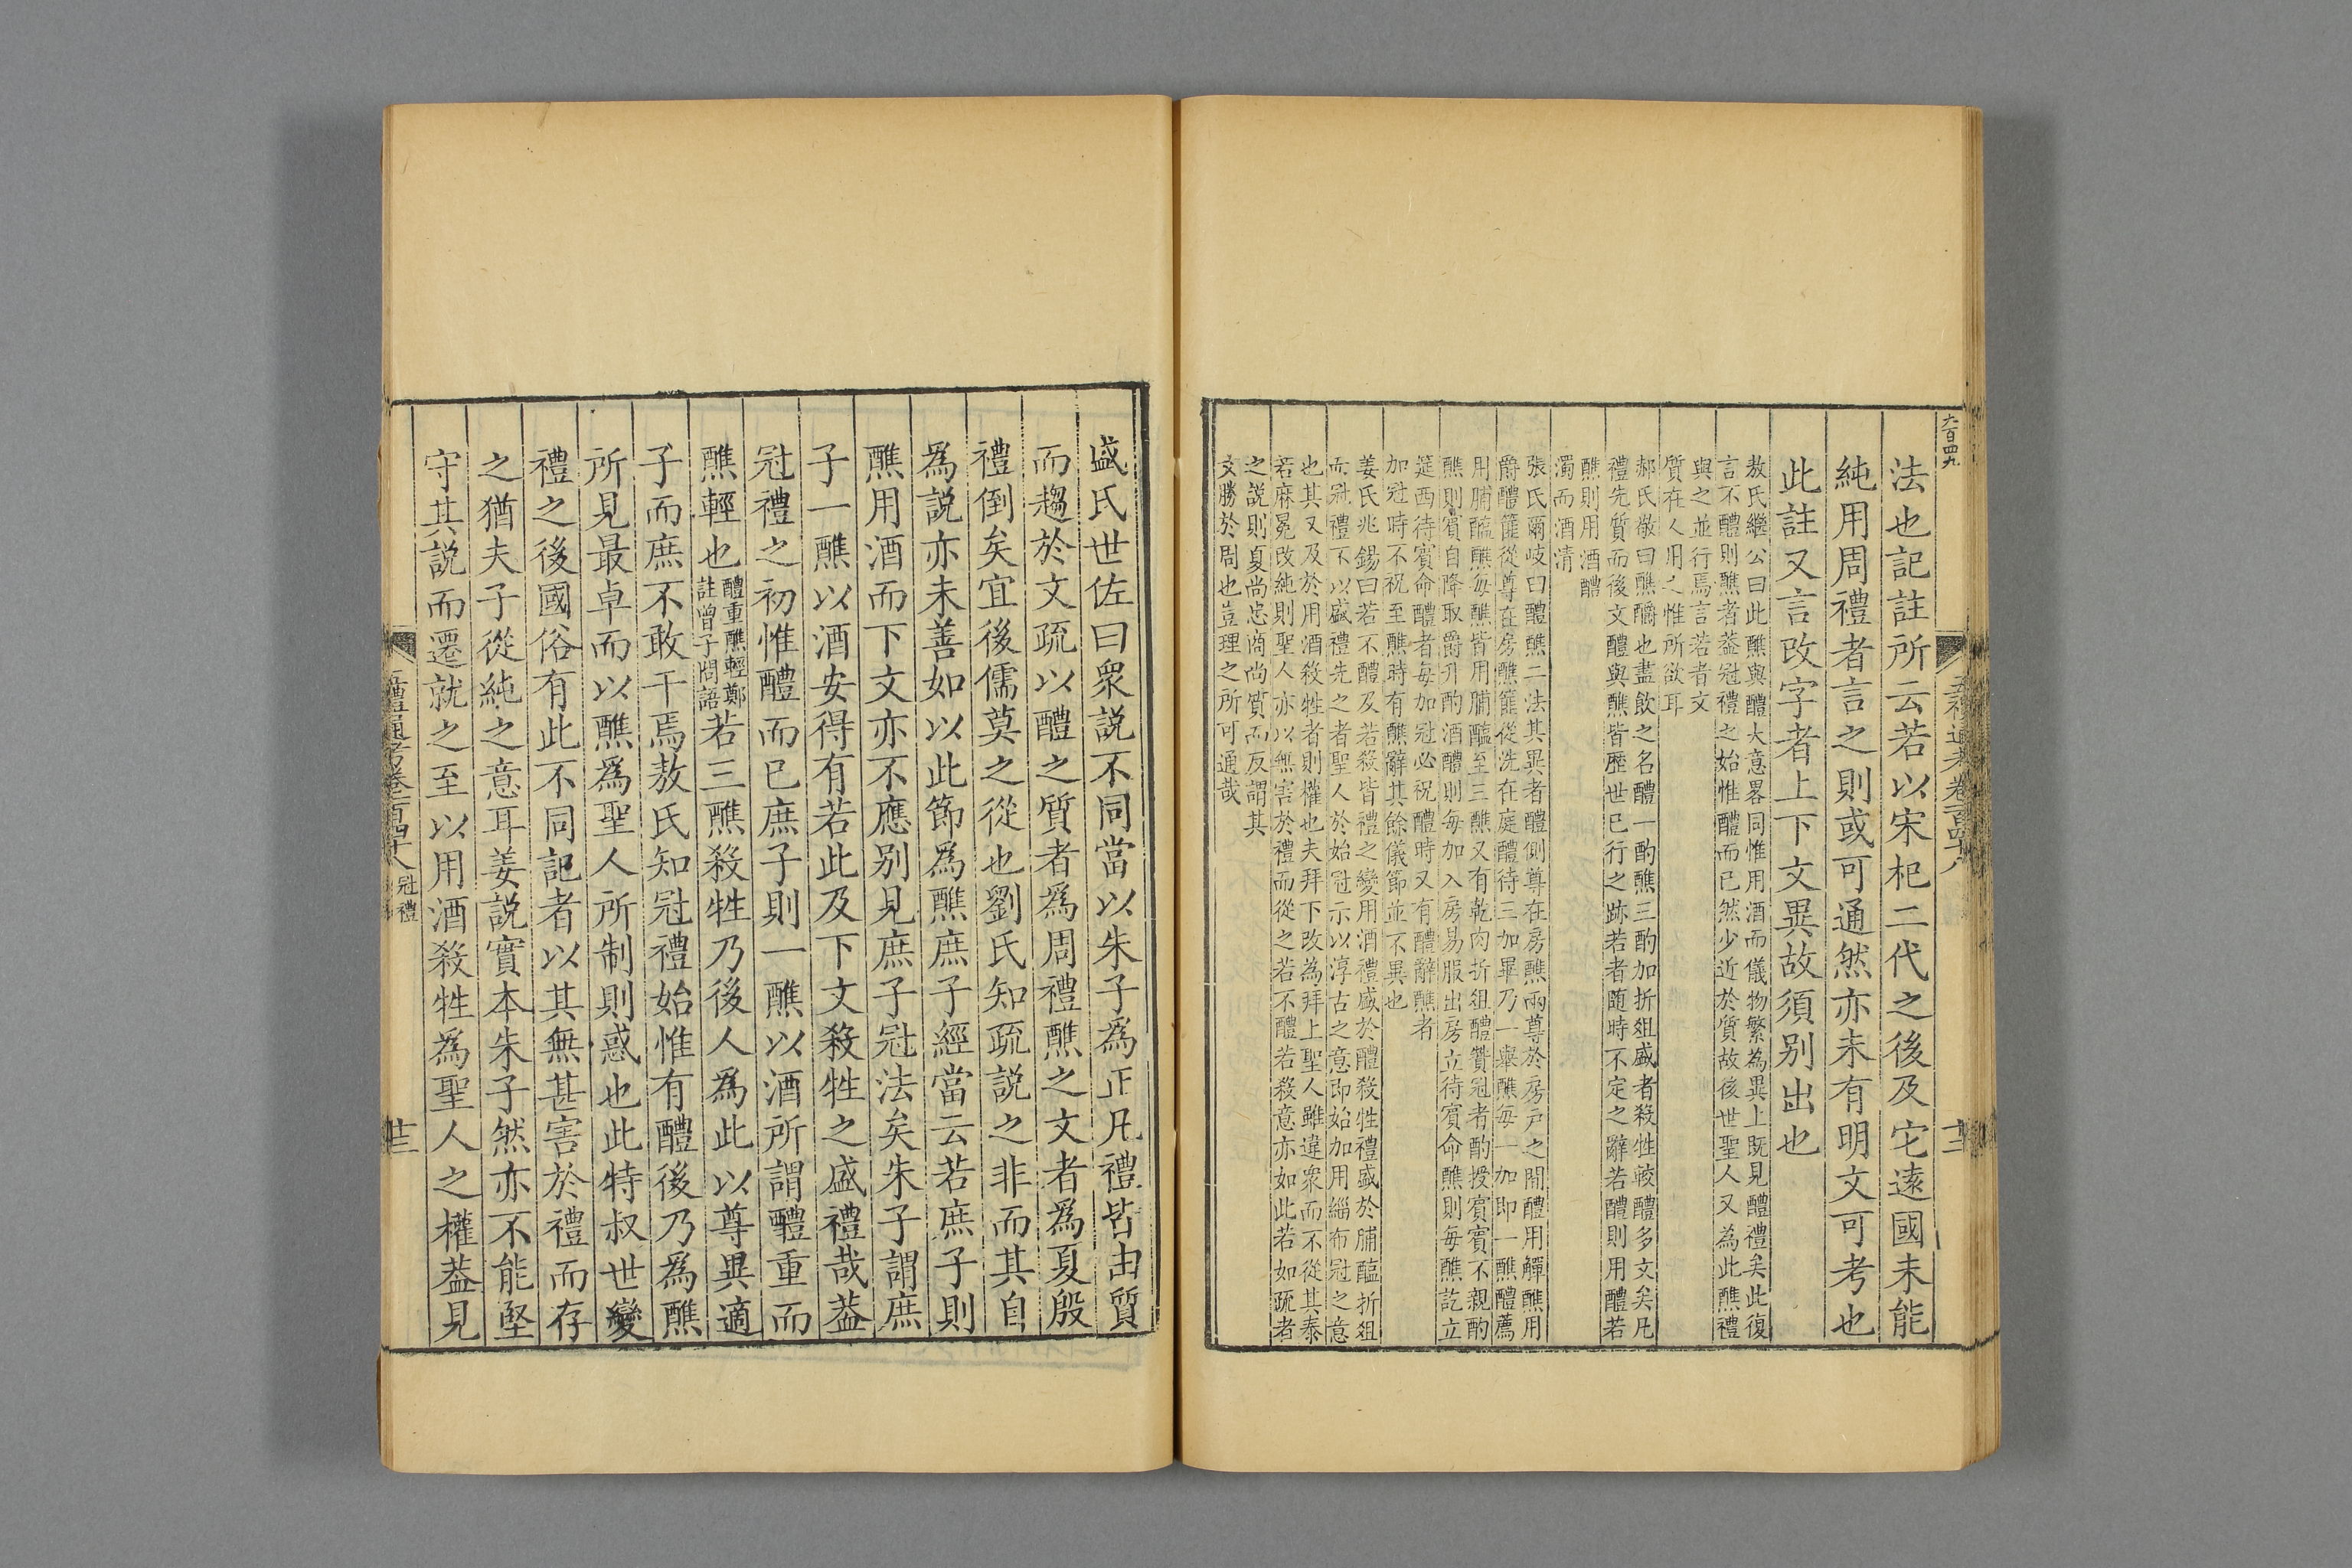 六百四九
法也記註所云若以宋杞二代之後及它遠國未能
純用周禮者言之則或可通然亦未有明文可考也
此註又言改字者上下文異故須别出也
敖氏繼公曰此醮與醴大意畧同惟用酒而儀物繁為異上既見醴禮矣此復
言不醴則醮者葢冠禮之始惟醴而已然少近於質故後世聖人又為此醮禮
與之並行焉言若者文
質在人用之惟所欲耳
郝氏敬曰醮釂也盡飲之名醴一酌醮三酌加折俎盛者殺牲較醴多文矣凡
禮先質而後文醴與醮皆歴世已行之跡若者随時不定之辭若醴則用醴若
醮則用酒醴
濁而酒清
張氏爾岐曰醴醮二法其異者醴側尊在房醮兩尊於房戶之間醴用觶醮用
爵醴篚從尊在房醮篚從洗在庭醴待三加畢乃一舉醮每一加即一醮醴薦
用脯醢醮每醮皆用脯醢至三醮又有乾肉折俎醴贊冠者酌授賓賓不親酌
醮則賓自降取爵升酌酒醴則每加入房易服出房立待賓命醮則每醮訖立
筵西待賓命醴者每加冠必祝醴時又有醴辭醮者
加冠時不祝至醮時有醮辭其餘儀節並不異也
姜氏兆錫曰若不醴及若殺皆禮之變用酒禮盛於醴殺牲禮盛於脯醢折俎
而冠禮不以盛禮先之者聖人於始冠示以淳古之意即始加用緇布冠之意
也其又及於用酒殺牲者則權也夫拜下改為拜上聖人雖違衆而不從其泰
若麻冕改純則聖人亦以無害於禮而從之若不醴若殺意亦如此若如疏者
之説則夏尚忠商尚質而反謂其
文勝於周也豈理之所可通哉
五禮通考卷一百四十八
十二
盛氏世佐曰衆説不同當以朱子為正凡禮皆由質
而趨於文疏以醴之質者為周禮醮之文者為夏殷
禮倒矣宜後儒莫之從也劉氏知疏説之非而其自
為説亦未善如以此節為醮庶子經當云若庶子則
醮用酒而下文亦不應别見庶子冠法矣朱子謂庶
子一醮以酒安得有若此及下文殺牲之盛禮哉葢
冠禮之初惟醴而已庶子則一醮以酒所謂醴重而
醮輕也醴重醮輕鄭註曾子問語若三醮殺牲乃後人為此以尊異適
子而庶不敢干焉敖氏知冠禮始惟有醴後乃為醮
所見最卓而以醮為聖人所制則惑也此特叔世變
禮之後國俗有此不同記者以其無甚害於禮而存
之猶夫子從純之意耳姜説實本朱子然亦不能堅
守其説而遷就之至以用酒殺牲為聖人之權葢見
五禮通考卷一百四十八 冠禮
十三